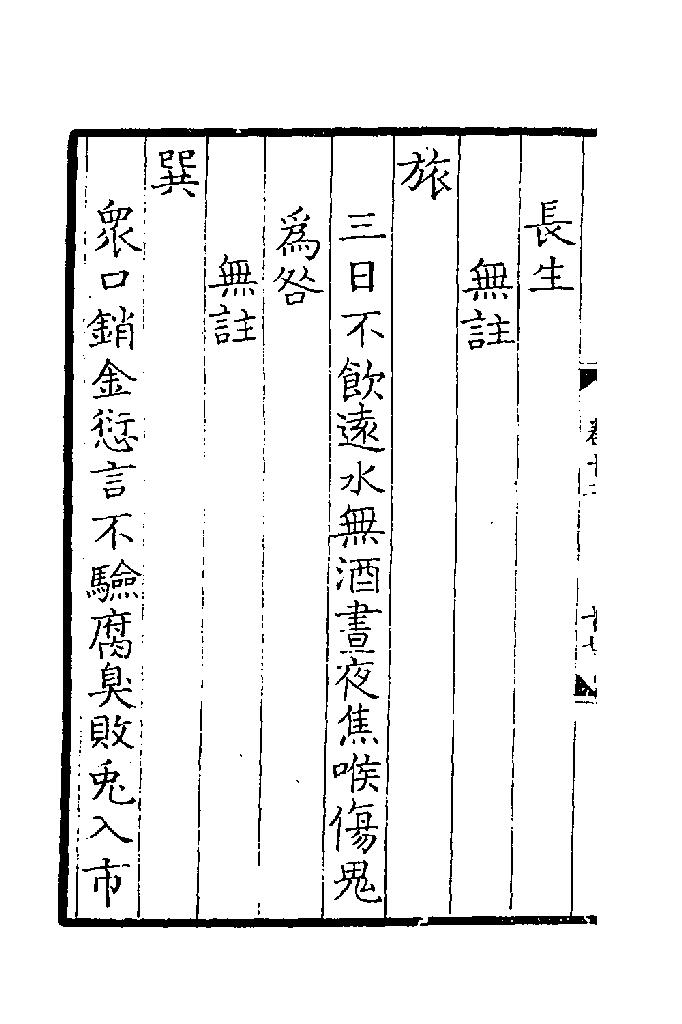 長生
無註
旅
三日不飲遠水無酒晝夜焦喉傷鬼
爲咎
無註
巽
衆口銷金愆言不驗腐臭敗兎入市